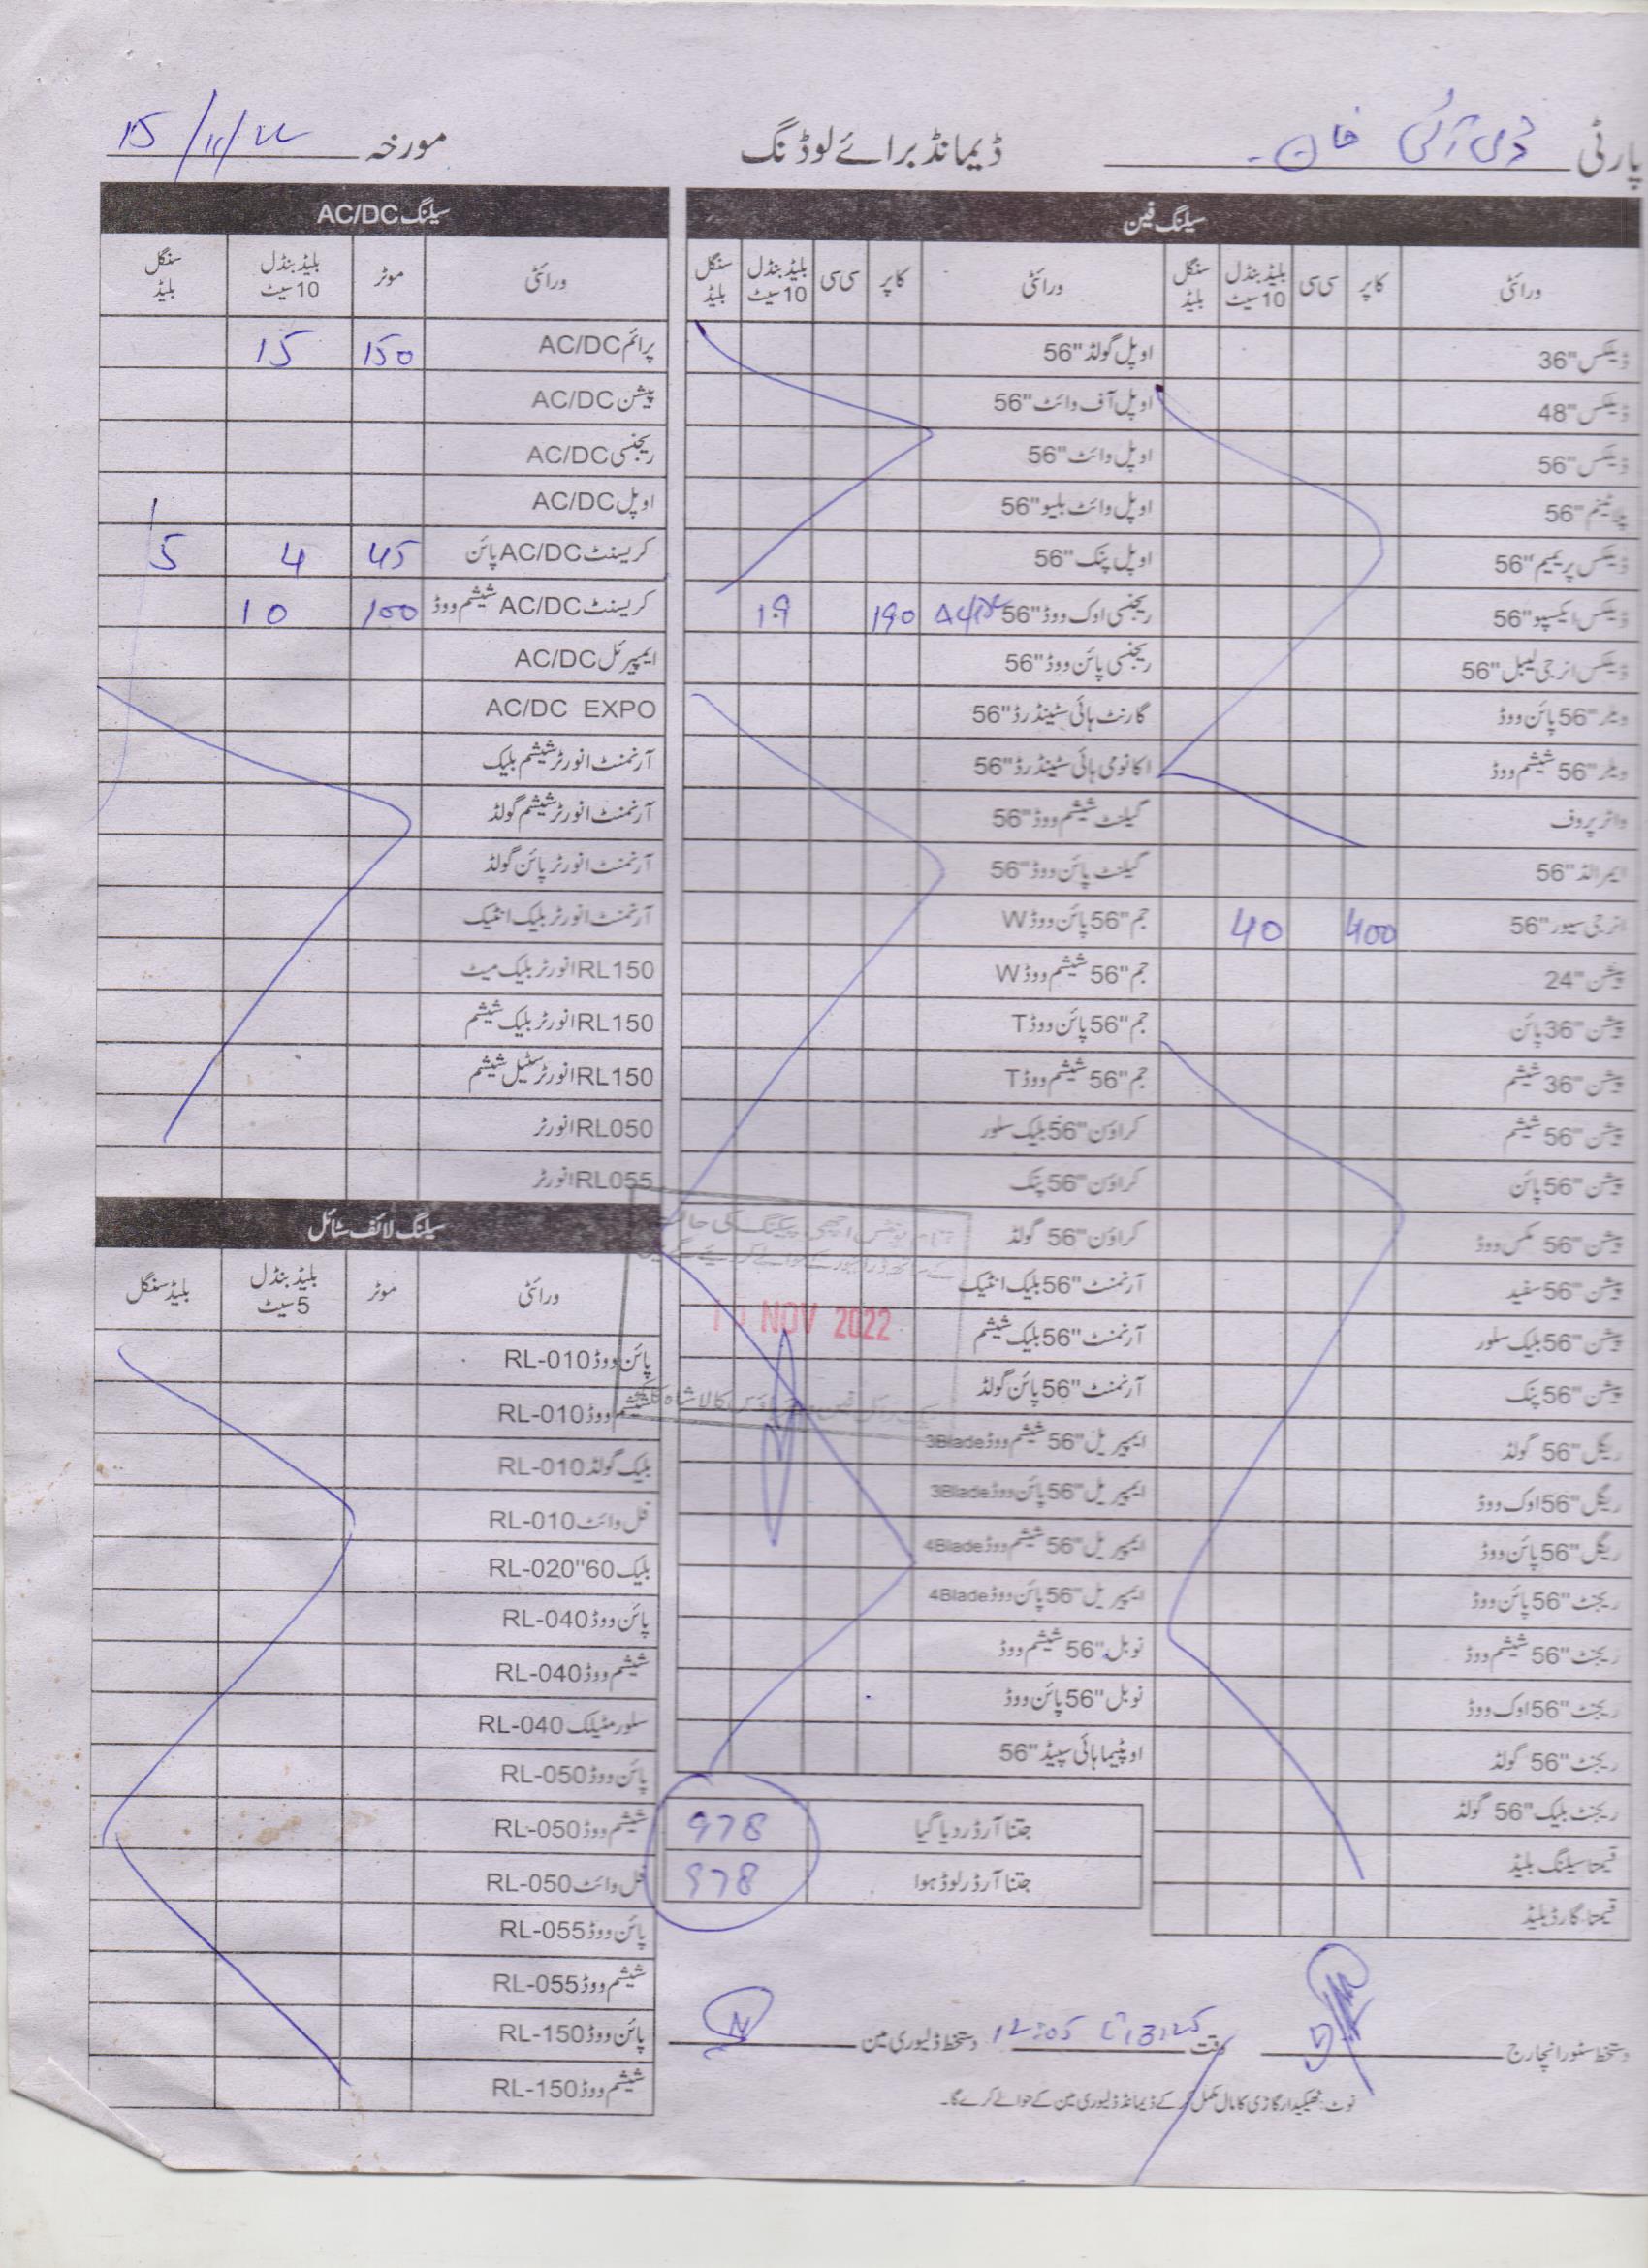 پارٹی ڈی آئی خان۔ ڈیمانڈ برائے لوڈنگ مورخہ 15/11/22
سیلنگ فین
ورائٹی کاپر سی سی بلیڈ بنڈل 10 سیٹ سنگل بلیڈ
ڈیلکس "36
ڈیلکس "48
ڈیلکس "56
پلاٹینم "56
ڈیلکس پریمیم "56
ڈیلکس ایکسپو "56
ڈیلکس انرجی لیبل "56
ویلر "56 پائن ووڈ
ویلر "56 شیشم ووڈ
واٹر پروف
ایمرالڈ "56
انرجی سیور "56 400 40
پیشن "24
پیشن "36 پائن
پیشن "36 شیشم
پیشن "56 شیشم
پیشن "56 پائن
پیشن "56 مکس ووڈ
پیشن "56 سفید
پیشن "56 بلیک سلور
پیشن "56 پنک
ریگل "56 گولڈ
ریگل "56 اوک ووڈ
ریگل "56 پائن ووڈ
ریجنٹ "56 پائن ووڈ
ریجنٹ "56 شیشم ووڈ
ریجنٹ "56 اوک ووڈ
ریجنٹ "56 گولڈ
ریجنٹ بلیک "56 گولڈ
قیمتا سیلنگ بلیڈ
قیمتا گارڈ بلیڈ
ورائٹی کاپر سی سی بلیڈ بنڈل 10 سیٹ سنگل بلیڈ
اوپل گولڈ "56
اوپل آف وائٹ "56
اوپل وائٹ "56
اوپل وائٹ بلیو "56
اوپل پنک "56
ریجنسی اوک ووڈ "56 AC/DC 190 19
ریجنسی پائن ووڈ "56
گارنٹ ہائی سٹینڈرڈ "56
اکانومی ہائی سٹینڈرڈ "56
گیلنٹ شیشم ووڈ "56
گیلنٹ پائن ووڈ "56
جم "56 پائن ووڈ W
جم "56 شیشم ووڈ W
جم "56 پائن ووڈ T
جم "56 شیشم ووڈ T
کراؤن "56 بلیک سلور
کراؤن "56 پنک
کراؤن "56 گولڈ
آرنمنٹ "56 بلیک انٹیک
آرنمنٹ "56 بلیک شیشم
آرنمنٹ "56 پائن گولڈ
ایمپریل "56 شیشم ووڈ 3Blade
ایمپریل "56 پائن ووڈ 3Blade
ایمپریل "56 شیشم ووڈ 4Blade
ایمپریل "56 پائن ووڈ 4Blade
نوبل "56 شیشم ووڈ
نوبل "56 پائن ووڈ
اوپٹیما ہائی سپیڈ "56
NOV 2022
جتنا آرڈر دیا گیا 978
جتنا آرڈر لوڈ ہوا 978
سیلنگ AC/DC
ورائٹی موٹر بلیڈ بنڈل 10 سیٹ سنگل بلیڈ
پرائم AC/DC 150 15
پیشن AC/DC
ریجنسی AC/DC
اوپل AC/DC
کریسنٹ AC/DC پائن 45 4 5
کریسنٹ AC/DC شیشم ووڈ 100 10
ایمپیرئل AC/DC
AC/DC EXPO
آرنمنٹ انورٹر شیشم بلیک
آرنمنٹ انورٹر شیشم گولڈ
آرنمنٹ انورٹر پائن گولڈ
آرنمنٹ انورٹر بلیک انٹیک
RL150 انورٹر بلیک میٹ
RL150 انورٹر بلیک شیشم
RL150 انورٹر سٹیل شیشم
RL050 انورٹر
RL055 انورٹر
سیلنگ لائف سٹائل
ورائٹی موٹر بلیڈ بنڈل 5 سیٹ بلیڈ سنگل
پائن ووڈ RL-010
شیشم ووڈ RL-010
بلیک گولڈ RL-010
فل وائٹ RL-010
بلیک RL-020"60
پائن ووڈ RL-040
شیشم ووڈ RL-040
سلور مٹیلک RL-040
پائن ووڈ RL-050
شیشم ووڈ RL-050
فل وائٹ RL-050
پائن ووڈ RL-055
شیشم ووڈ RL-055
پائن ووڈ RL-150
شیشم ووڈ RL-150
دستخط سٹور انچارج وقت 12:05 تا 13:25 دستخط ڈلیوری مین
نوٹ: ٹھیکیدار گاڑی کا مال مکمل کر کے ڈیمانڈ ڈلیوری مین کے حوالے کرے گا۔